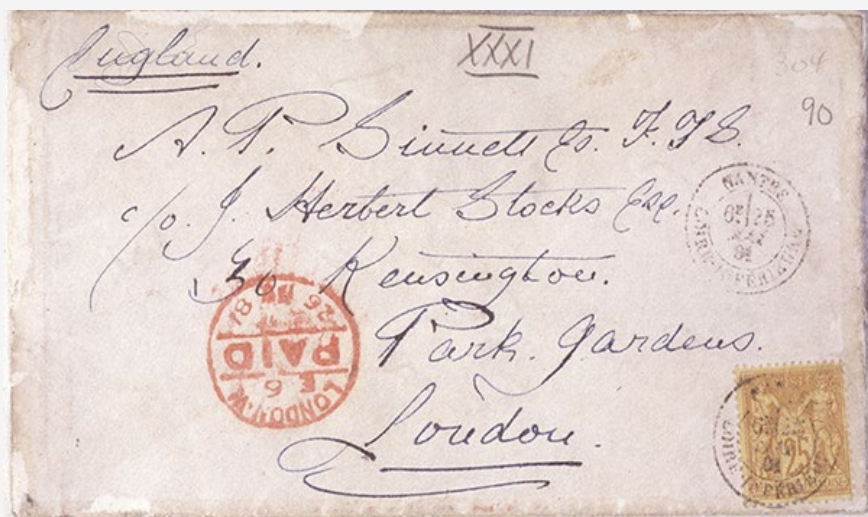 England.
XXXI
304
90
A. P. Sinnett Es. F.T.S.
c/o. J. Herbert Stocks Esq.
30 Kensington.
Park. Gardens.
London.
NANTES
LONDON.W
6
PAID
26
81
25